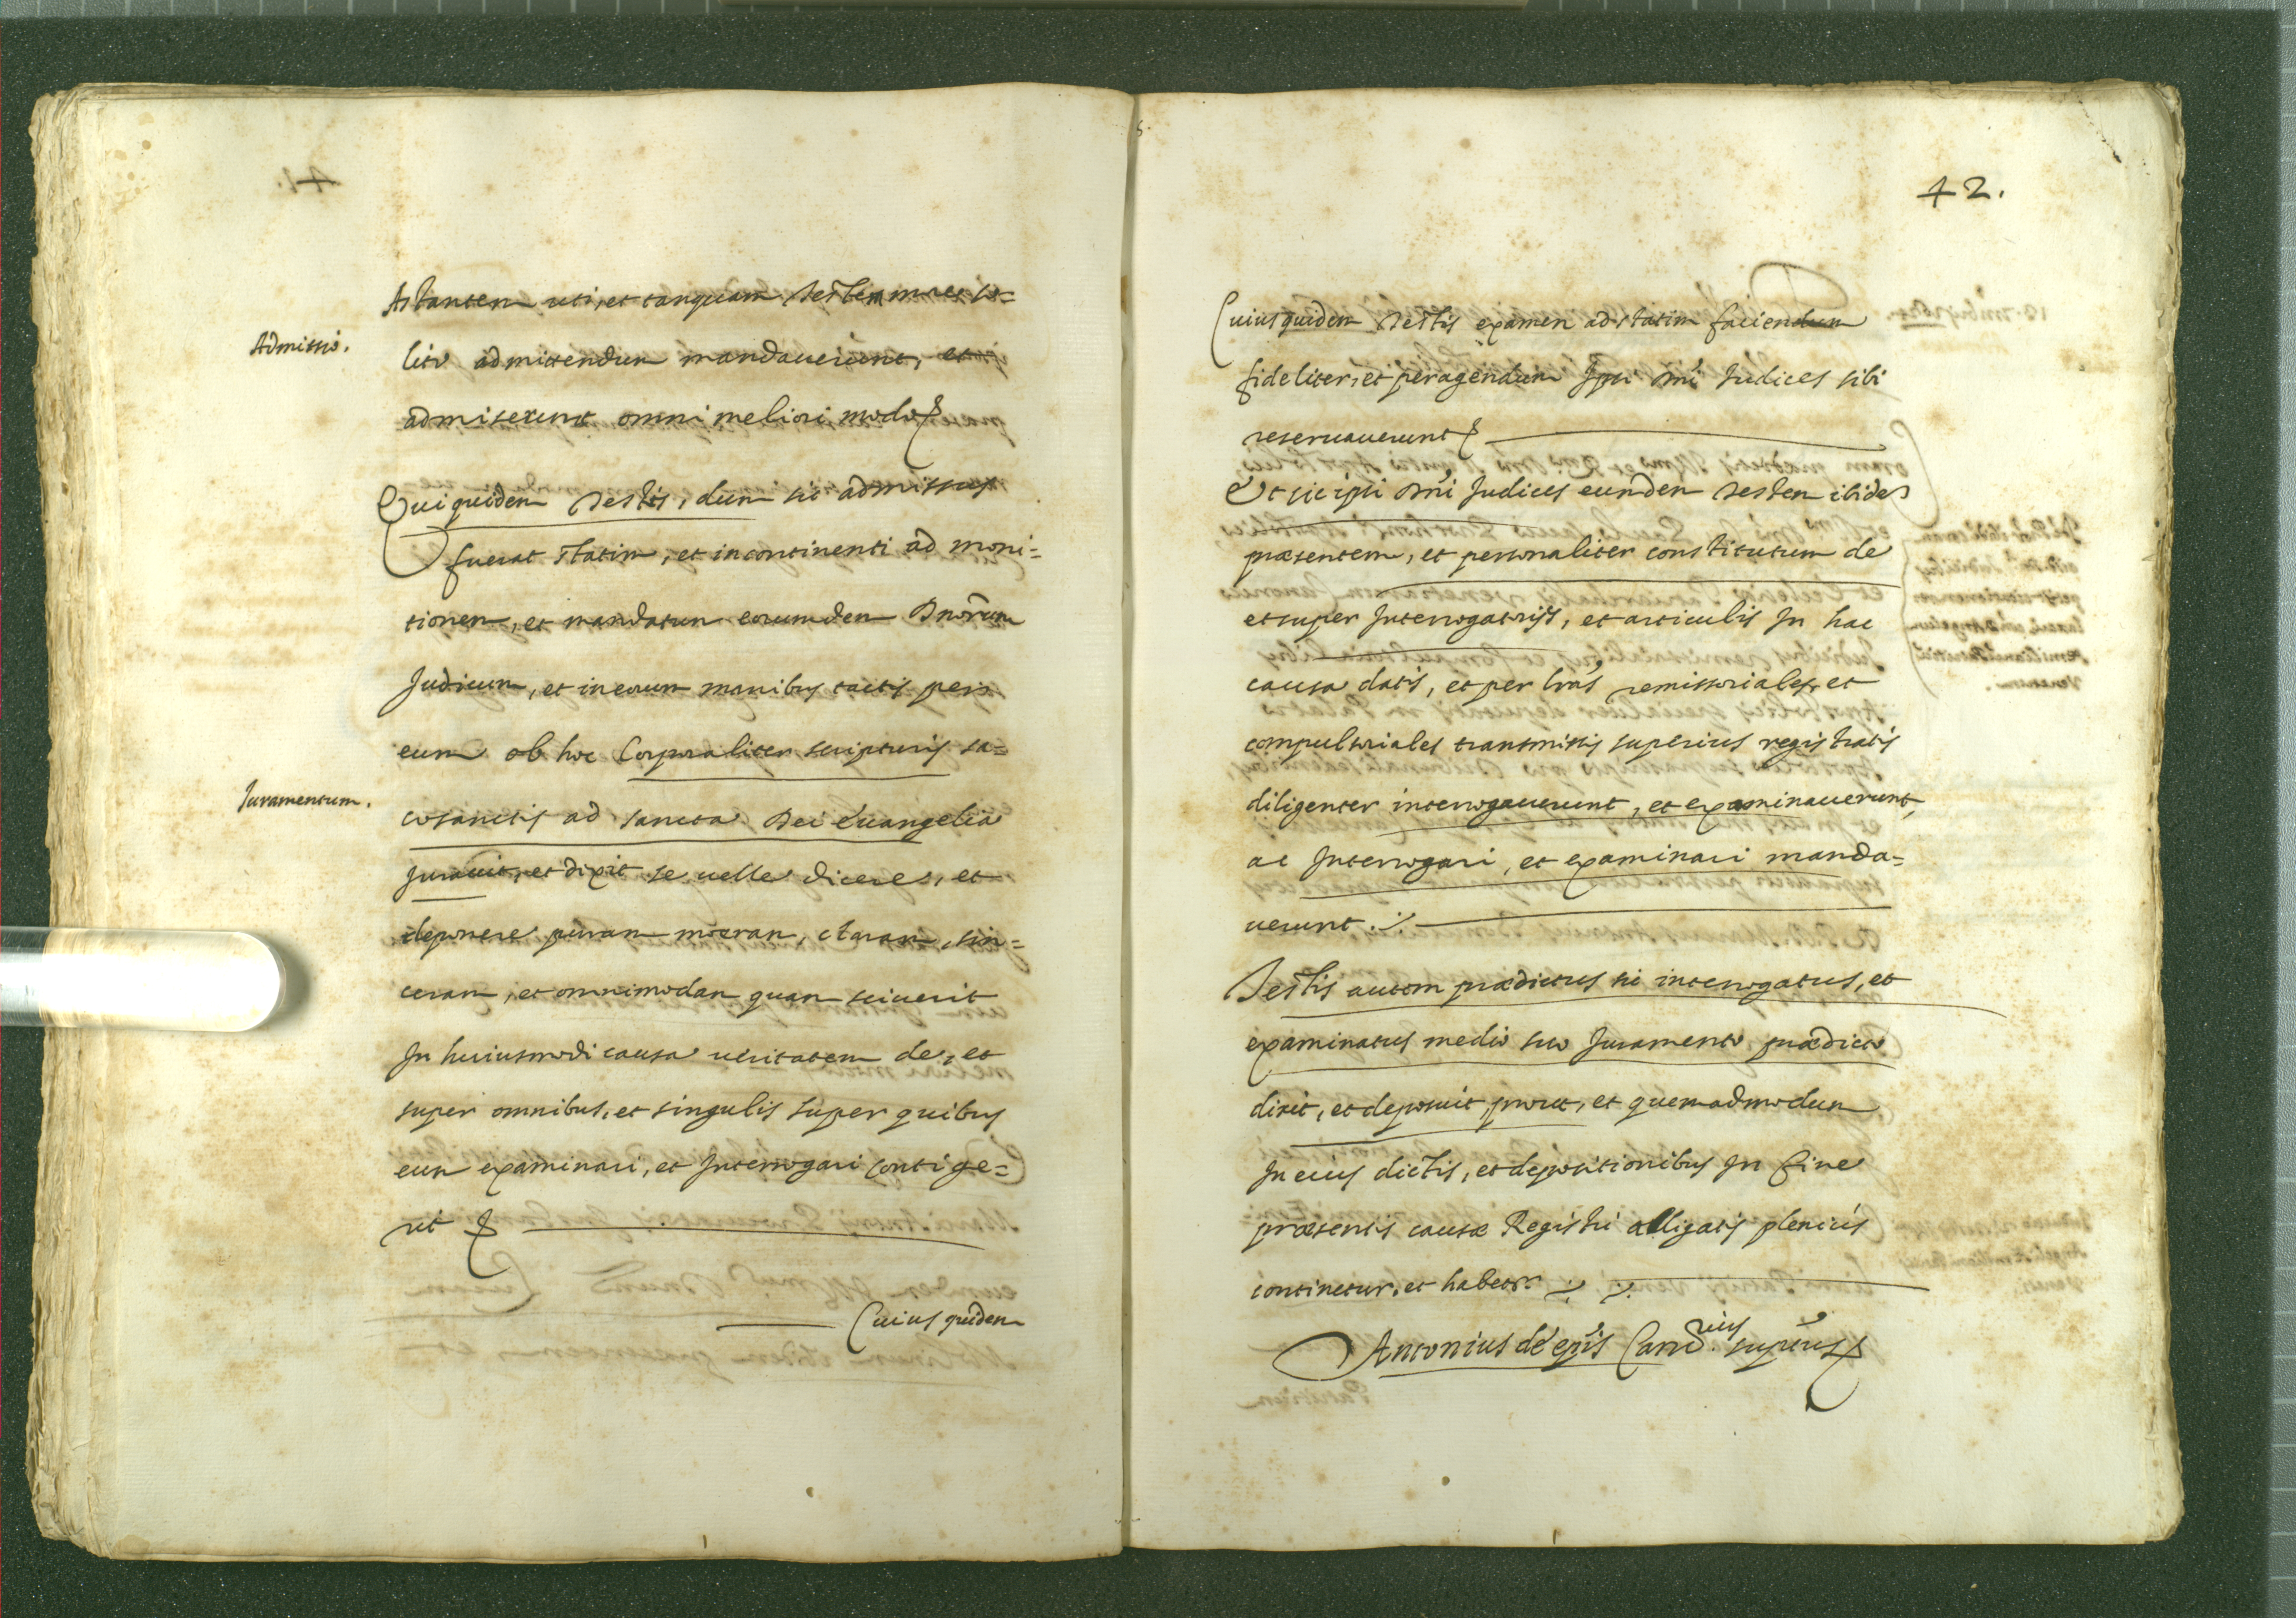 Astantem uti, et tanquam testem more so=
Admissio.
lito admittendum mandauerunt, et
admiserunt omni meliori modo
Qui quidem testis, dum sic admissus
fuerat statim, et incontinenti ad moni=
tionem, et mandatum eorumdem Dnōrum
Judicum, et in eorum manibus tactis per
eum ob hoc Corporaliter scripturis sa=
Iuramentum.
cosanctis ad sancta Dei Euangelia
Jurauit, et dixit se uelle dicere, et
deponere puram meram, claram, sin=
ceram, et omnimodam quam sciuerit
In huiusmodi causa ueritatem de, et
super omnibus, et singulis super quibus
eum examinari, et Interrogari contige=
rit
Cuius quidem
42.
Cuius quidem testis examen ad statim faciendum
fideliter, et peragendum Ipsi Dnī Iudices sibi
reseruauerunt
Et sic ipsi Dnī Judices eumdem testem ibidem
præsentem, et personaliter constitutum de
et super Interrogatorijs, et articulis In hac
causa datis, et per lrās remissoriales, et
compulsoriales transmissis superius registratis
diligenter interrogauerunt, et examinauerunt,
ac Interrogari, et examinari manda=
uerunt.
Testis autem prædictus sic interrogatus, et
examinatus medio suo Juramento prædicto
dixit, et deposuit, prout, et quemadmodum
In eius dictis, et depositionibus In fine
præsentis causæ Registri alligatis plenius
continetur, et habetr.
Antonius de epīs Canc.rius supr̄us